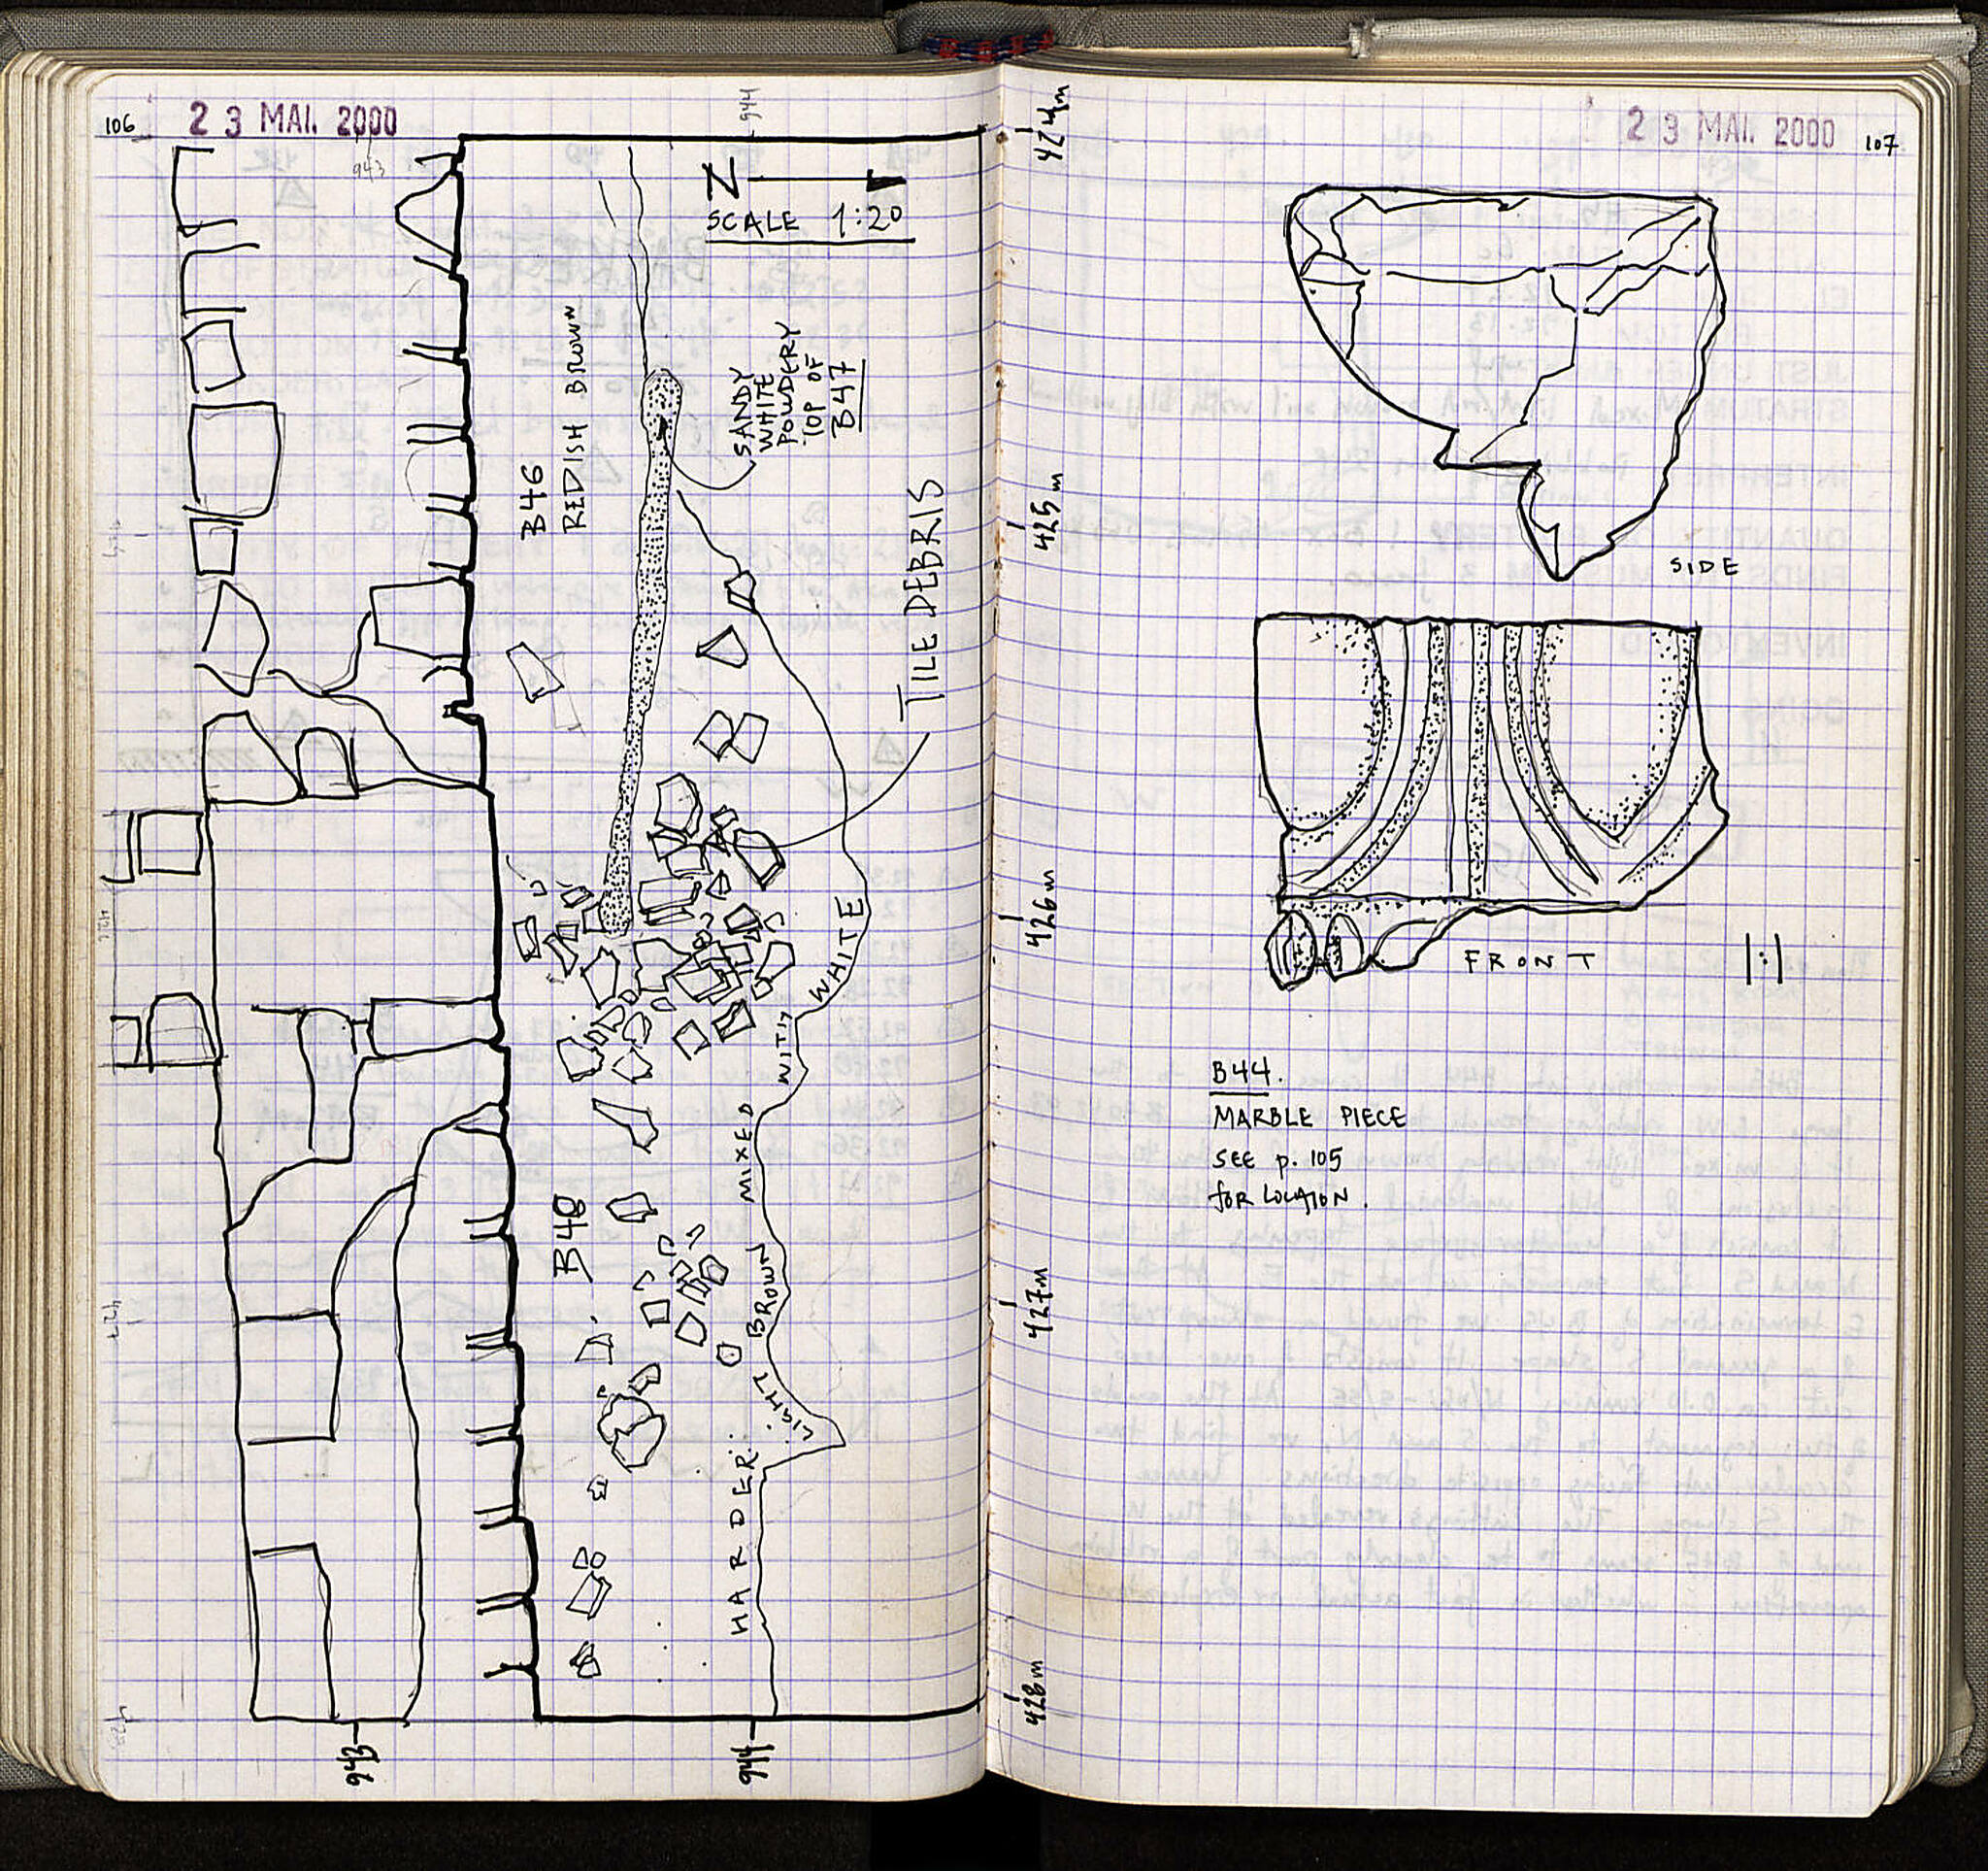 106
23 MAI. 2000
943
944
N
SCALE 1:20
B46
REDISH BROWN
SANDY
WHITE
POWDERY
TOP OF
B47
TILE DEBRIS
B48
HARDER
LIGHT BROWN MIXED WITH WHITE
943
944
424m
425m
426m
427m
428m
23 MAI. 2000
107
SIDE
FRONT
1:1
B44.
MARBLE PIECE
SEE p. 105
FOR LOCATION.